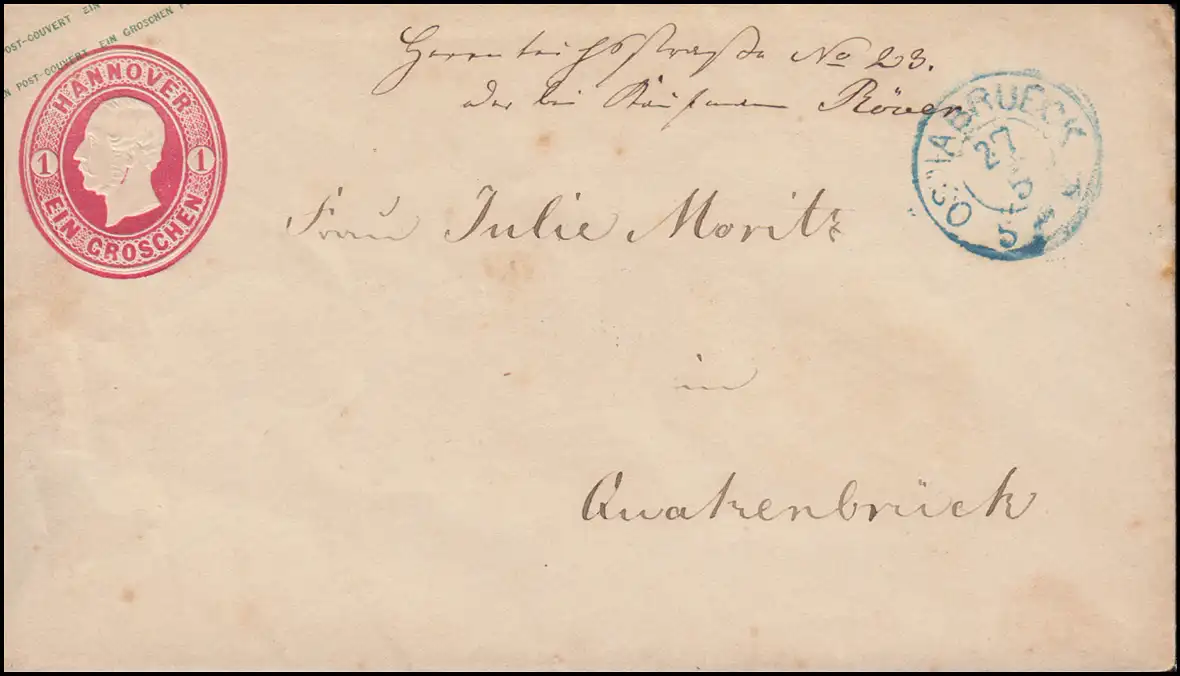 POST-COUVERT EIN
EN POST-COUVERT EIN GROSCHEN PO
HANNOVER
1 1
EIN GROSCHEN
No 23.
Röver
OSNABRUECK
27
5
5
Frau Julie Moritz
in
Quakenbrück